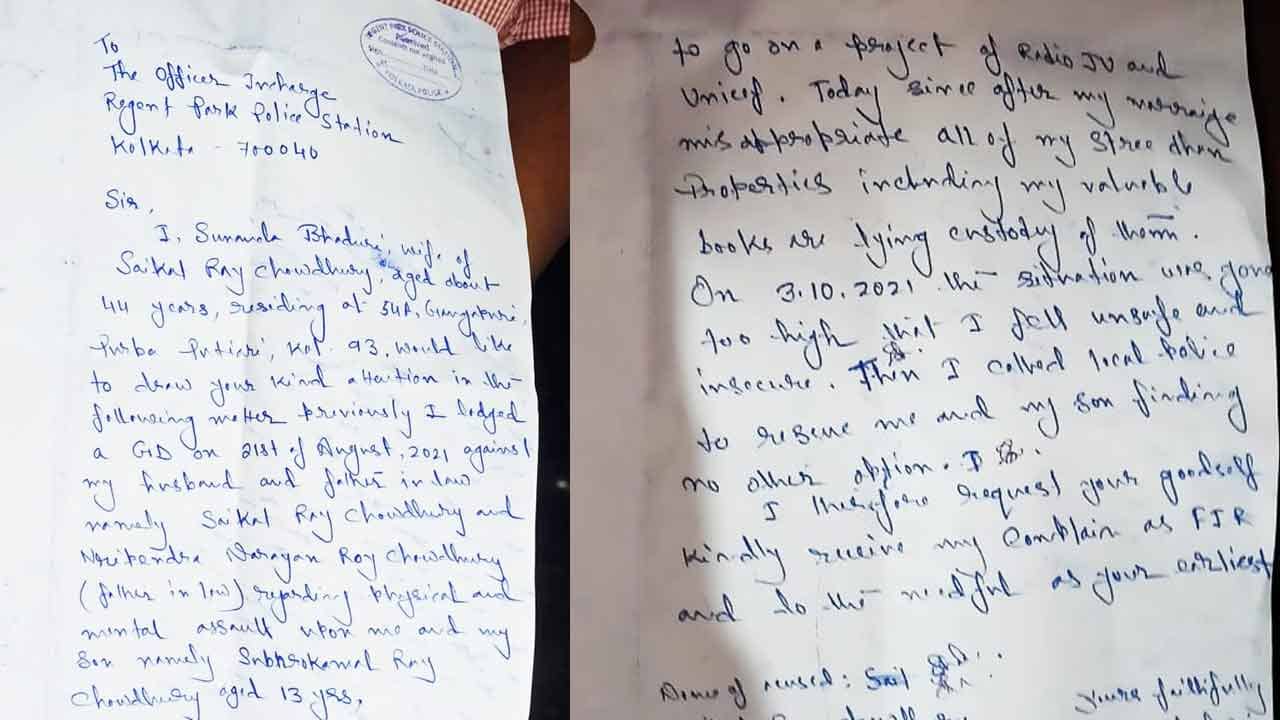 To
The Officer Incharge
Regent Park Police Station
Kolkata - 700040
Sir,
I, Sunanda Bhaduri, wife of
Saikal Ray Chowdhury, aged about
44 years, residing at 54A, Gangapuri,
Purba Putiari, Kol. 93, would like
to draw your kind attention in the
following matter previously I lodged
a GD on 21st of August, 2021 against
my husband and father in law
namely Saikal Ray Chowdhury and
Nripendra Narayan Roy Chowdhury
(father in law) regarding physical and
mental assault upon me and my
son namely Subhrokamal Ray
Chowdhury aged 13 yrs,
to go on a project of Radio JU and
Unicef. Today since after my marraige
misappropriate all of my stree dhan
Properties including my valueble
books are lying custody of them.
On 3.10.2021 the situation was gone
too high that I fell unsafe and
insecure. Then I called local Police
to rescue me and my son finding
no other option. I
I therefore request your goodself
kindly receive my Complain as FIR
and do the needful as your earliest
Name of accused: Sail
yours faithfully